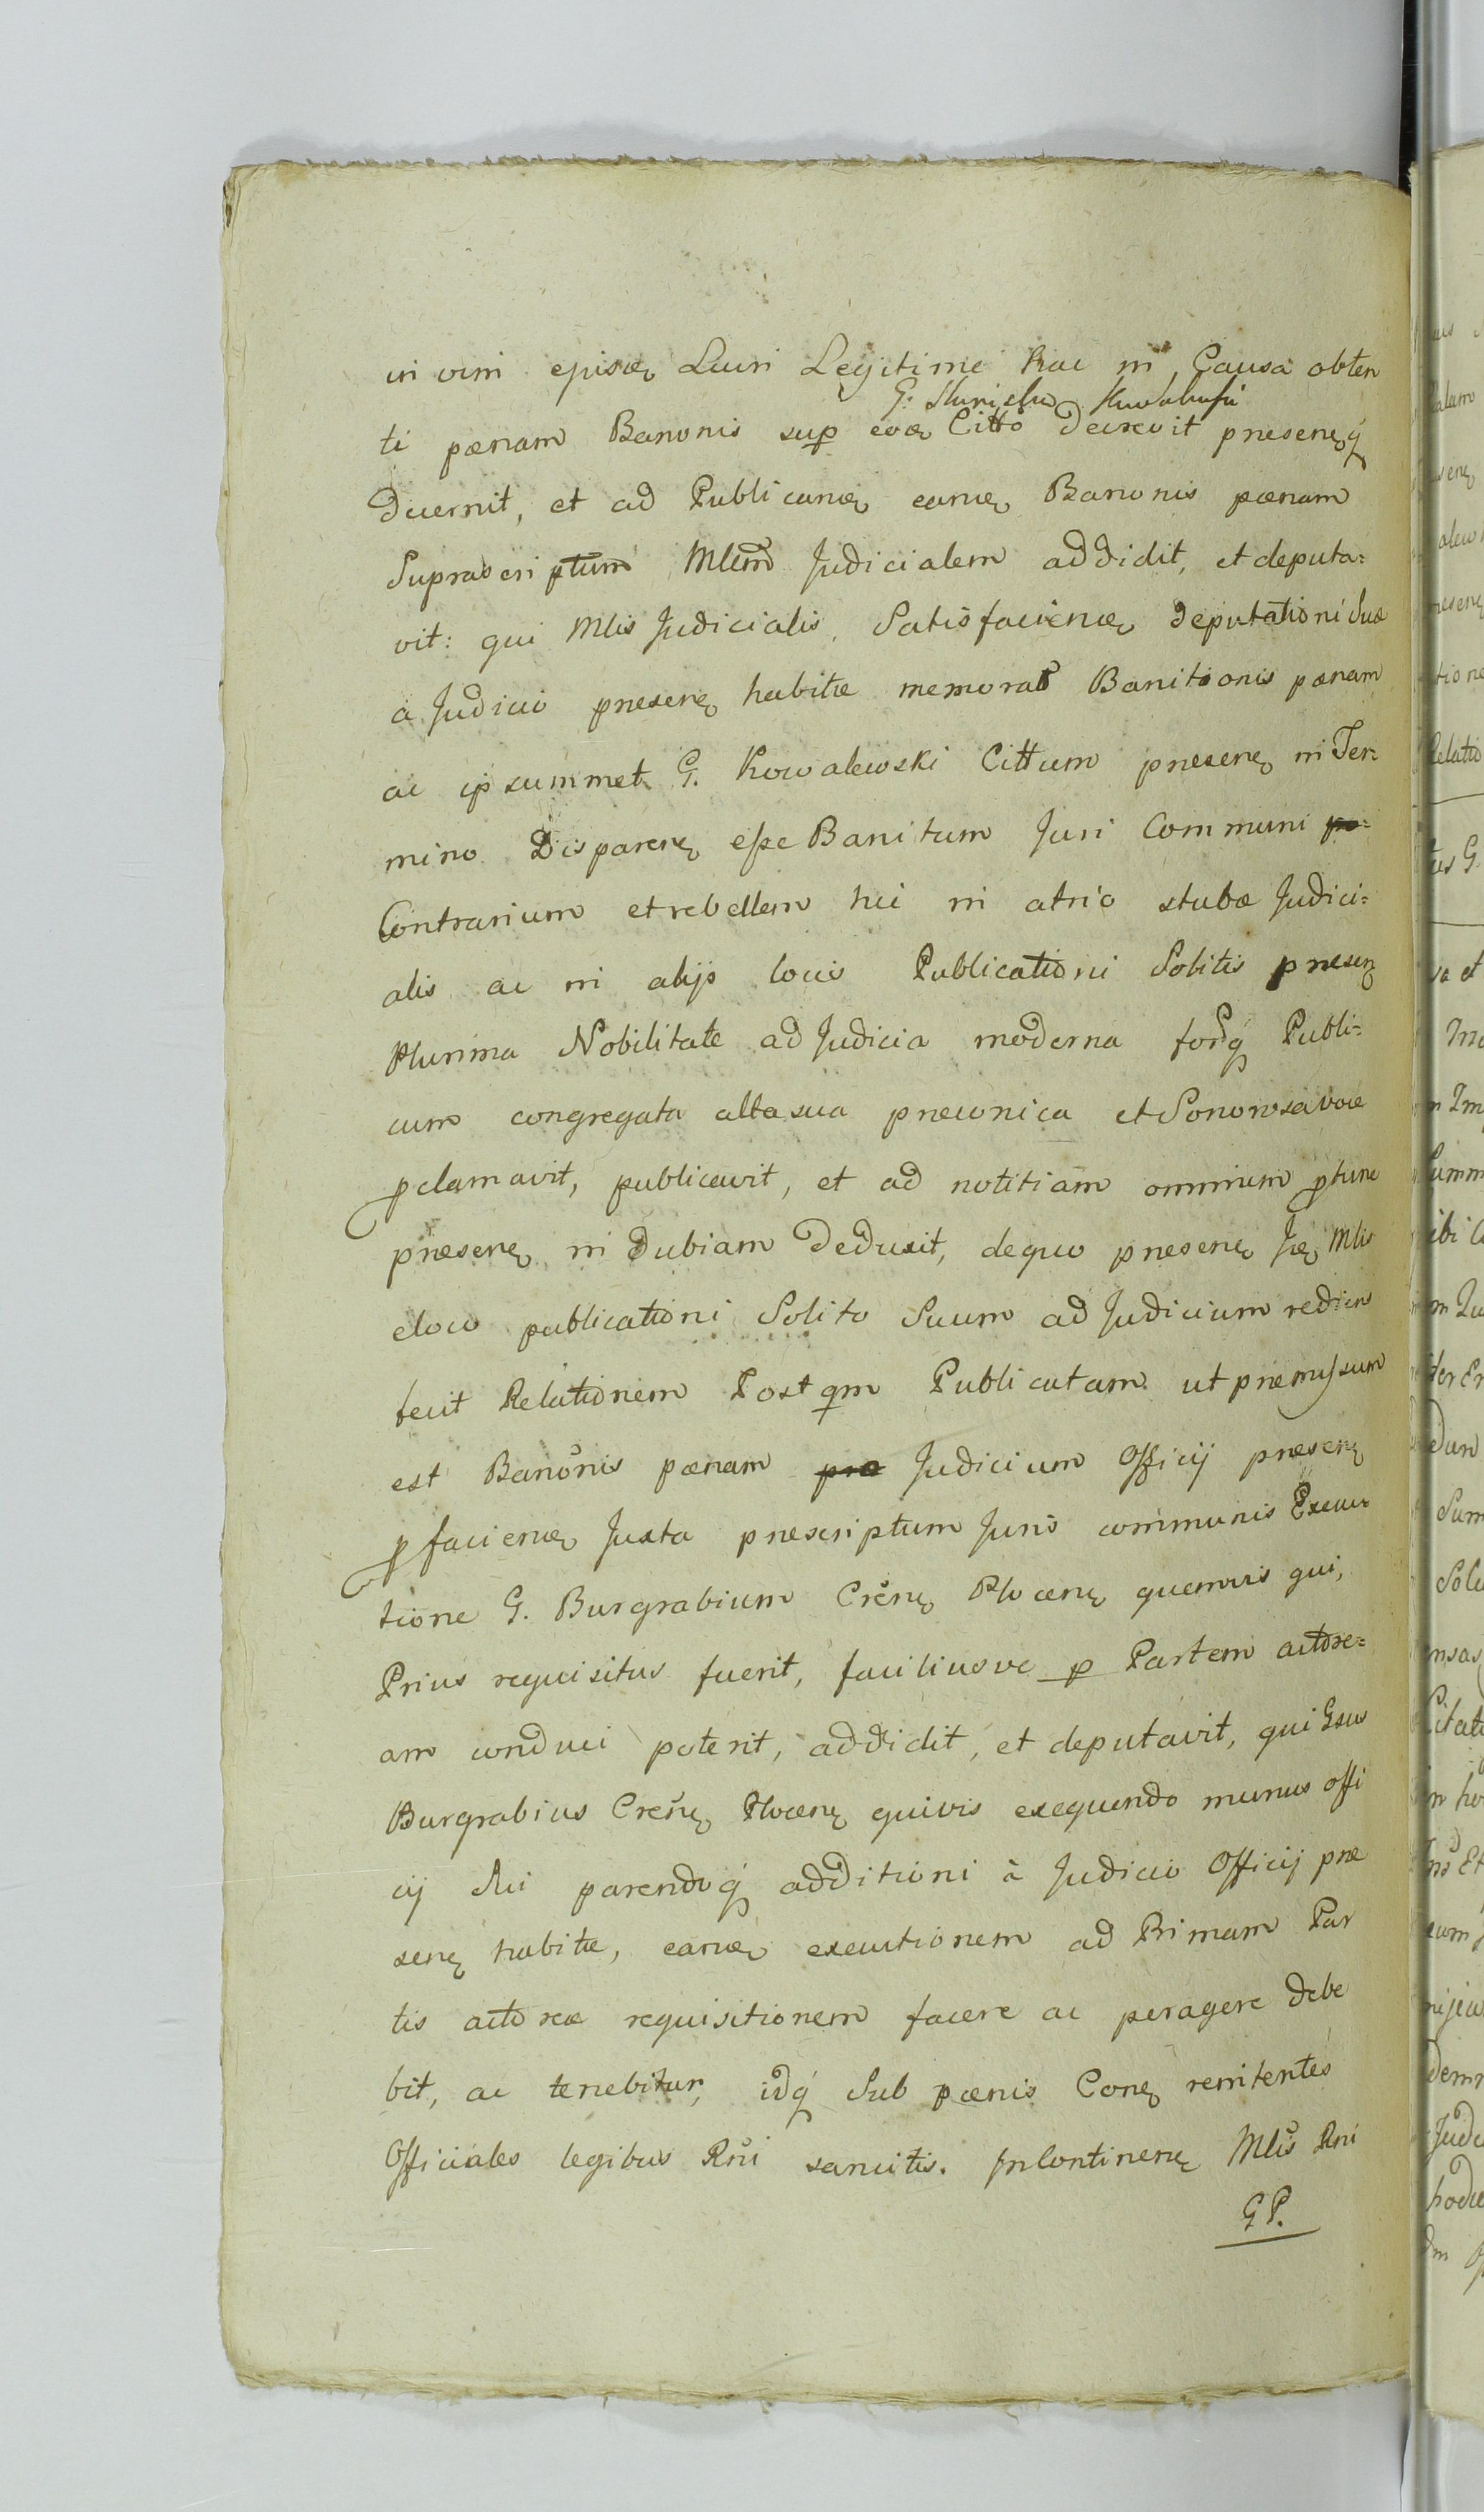 in vim episdę Lucri Legitime hac in Causa obten
G. Stanislao Kowalewski
ti pœnam Banonis sup eodę Citto decrevit presenęq́
decernit, et ad Publicandę eandę Banonis pœnam
Suprascriptum Mlem Judicialem addidit, et deputa=
vit: qui Mlis Judicialis Satisfaciendę deputationi suæ
a Judicio presenę habitæ memorat Banitionis pœnam
ac ipsummet G. Kowalewski Cittum presenę in Ter=
mino Disparenę eſse Banitum Juri Communi
Contrarium et rebellem hic in atrio stubæ Judici=
alis ac in alijs locis Publicationi Solitis presenę
Plurima Nobilitate ad Judicia moderna forq́ Publi=
cum congregata alta sua preconica et Sonorosa voce
pclamavit, publicavit, et ad notitiam omnium ptunc
presenę in dubiam deduxit, de quo presenę Ję Mlis
e loco publicationi Solito Suum ad Judicium rediens
fecit Relationem Post qm Publicatam ut premiſsum
est Banonis pœnam Judicium Officij presenę
p faciendę Juxta prescriptum Juris communis Execu=
tione G. Burgrabium Crenę Plocenę quemvis qui,
Prius requisitus fuerit, faciliusve p Partem actore=
am conduci poterit, addidit, et deputavit, qui Gsus
Burgrabius Crenę Plocenę quivis exequendo munus offi
cij Sui parendoq́ additioni à Judicio Officij pre
senę habitæ, eandę executionem ad Primam Par
tis actoreæ requisitionem facere ac peragere debe
bit, ac tenebitur, idq́ Sub pœnis Conę renitentes
Officiales legibus Rni sancitis. In Continenę Mlis Rni
GP.